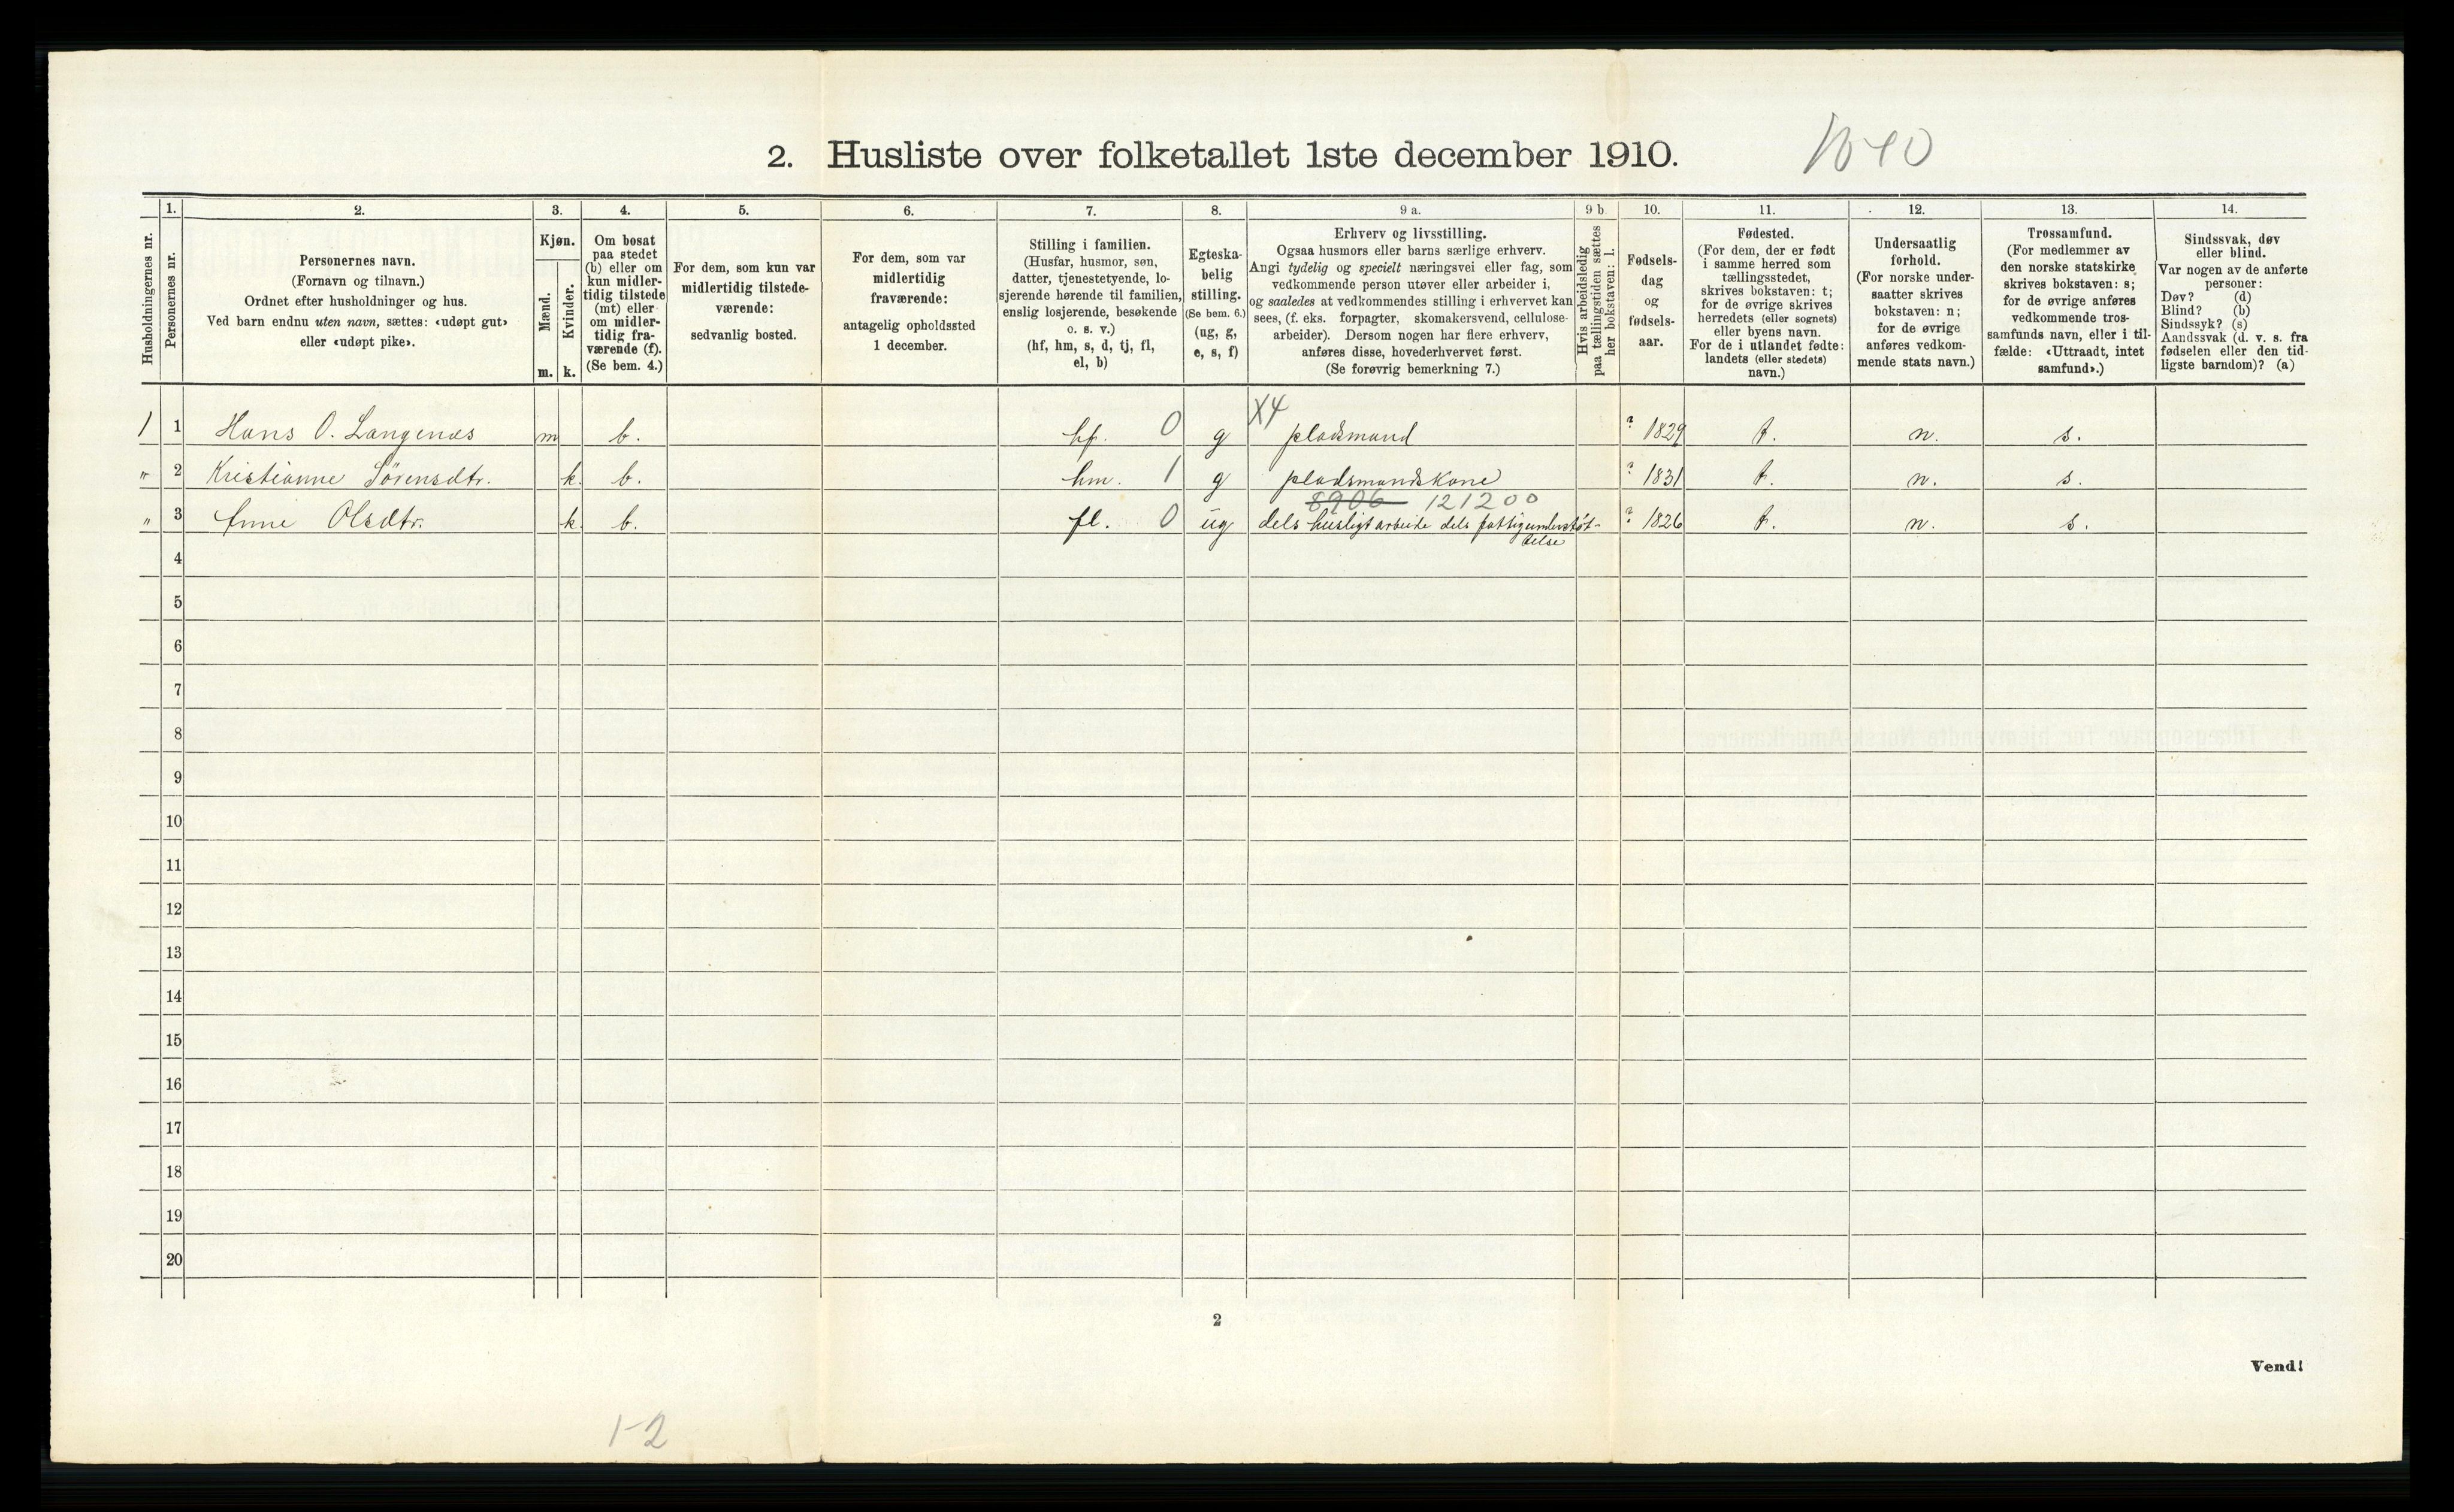 2. Husliste over folketallet 1ste december 1910.
Husholdningernes nr.
1.
Personernes nr.
2.
Personernes navn.
(Fornavn og tilnavn.)
Ordnet efter husholdninger og hus.
Ved barn endnu uten navn, sættes: «udøpt gut»
eller «udøpt pike».
3.
Kjøn.
Mænd.
Kvinder.
m. k.
4.
Om bosat
paa stedet
(b) eller om
kun midler-
tidig tilstede
(mt) eller
om midler-
tidig fra-
værende (f).
(Se bem. 4.)
5.
For dem, som kun var
midlertidig tilstede-
værende:
sedvanlig bosted.
6.
For dem, som var
midlertidig
fraværende:
antagelig opholdssted
1 december.
7.
Stilling i familien.
(Husfar, husmor, søn,
datter, tjenestetyende, lo-
sjerende hørende til familien,
enslig losjerende, besøkende
o. s. v.)
(hf, hm, s, d, tj, fl,
el, b)
8.
Egteska-
belig
stilling.
(Se bem. 6.)
(ug, g,
e, s, f)
9 a.
Erhverv og livsstilling.
Ogsaa husmors eller barns særlige erhverv.
Angi tydelig og specielt næringsvei eller fag, som
vedkommende person utøver eller arbeider i,
og saaledes at vedkommendes stilling i erhvervet kan
sees, (f. eks. forpagter, skomakersvend, cellulose-
arbeider). Dersom nogen har flere erhverv,
anføres disse, hovederhvervet først.
(Se forøvrig bemerkning 7.)
9 b
Hvis arbeidsledig
paa tællingstiden sættes
her bokstaven: l.
10.
Fødsels-
dag
og
fødsels-
aar.
11.
Fødested.
(For dem, der er født
i samme herred som
tællingsstedet,
skrives bokstaven: t;
for de øvrige skrives
herredets (eller sognets)
eller byens navn.
For de i utlandet fødte:
landets (eller stedets)
navn.)
12.
Undersaatlig
forhold.
(For norske under-
saatter skrives
bokstaven: n;
for de øvrige
anføres vedkom-
mende stats navn.)
13.
Trossamfund.
(For medlemmer av
den norske statskirke
skrives bokstaven: s;
for de øvrige anføres
vedkommende tros-
samfunds navn, eller i til-
fælde: «Uttraadt, intet
samfund».)
14.
Sindssvak, døv
eller blind.
Var nogen av de anførte
personer:
Døv? (d)
Blind? (b)
Sindssyk? (s)
Aandssvak (d. v. s. fra
fødselen eller den tid-
ligste barndom)? (a)
X4
1 1 Hans O. Langenæs m b. hf. 0 g pladsmand ? 1829 t. n. s.
" 2 Kristianne Sørensdtr. k. b. hm. 1 g pladsmandskone ? 1831 t. n. s.
8906 121200
" 3 Anne Olsdtr. k. b. fl. 0 ug dels husligt arbeide dels fattigunderstøt- ? 1826 t. n. s.
telse
4
5
6
7
8
9
10
11
12
13
14
15
16
17
18
19
20
2
Vend!
1-2